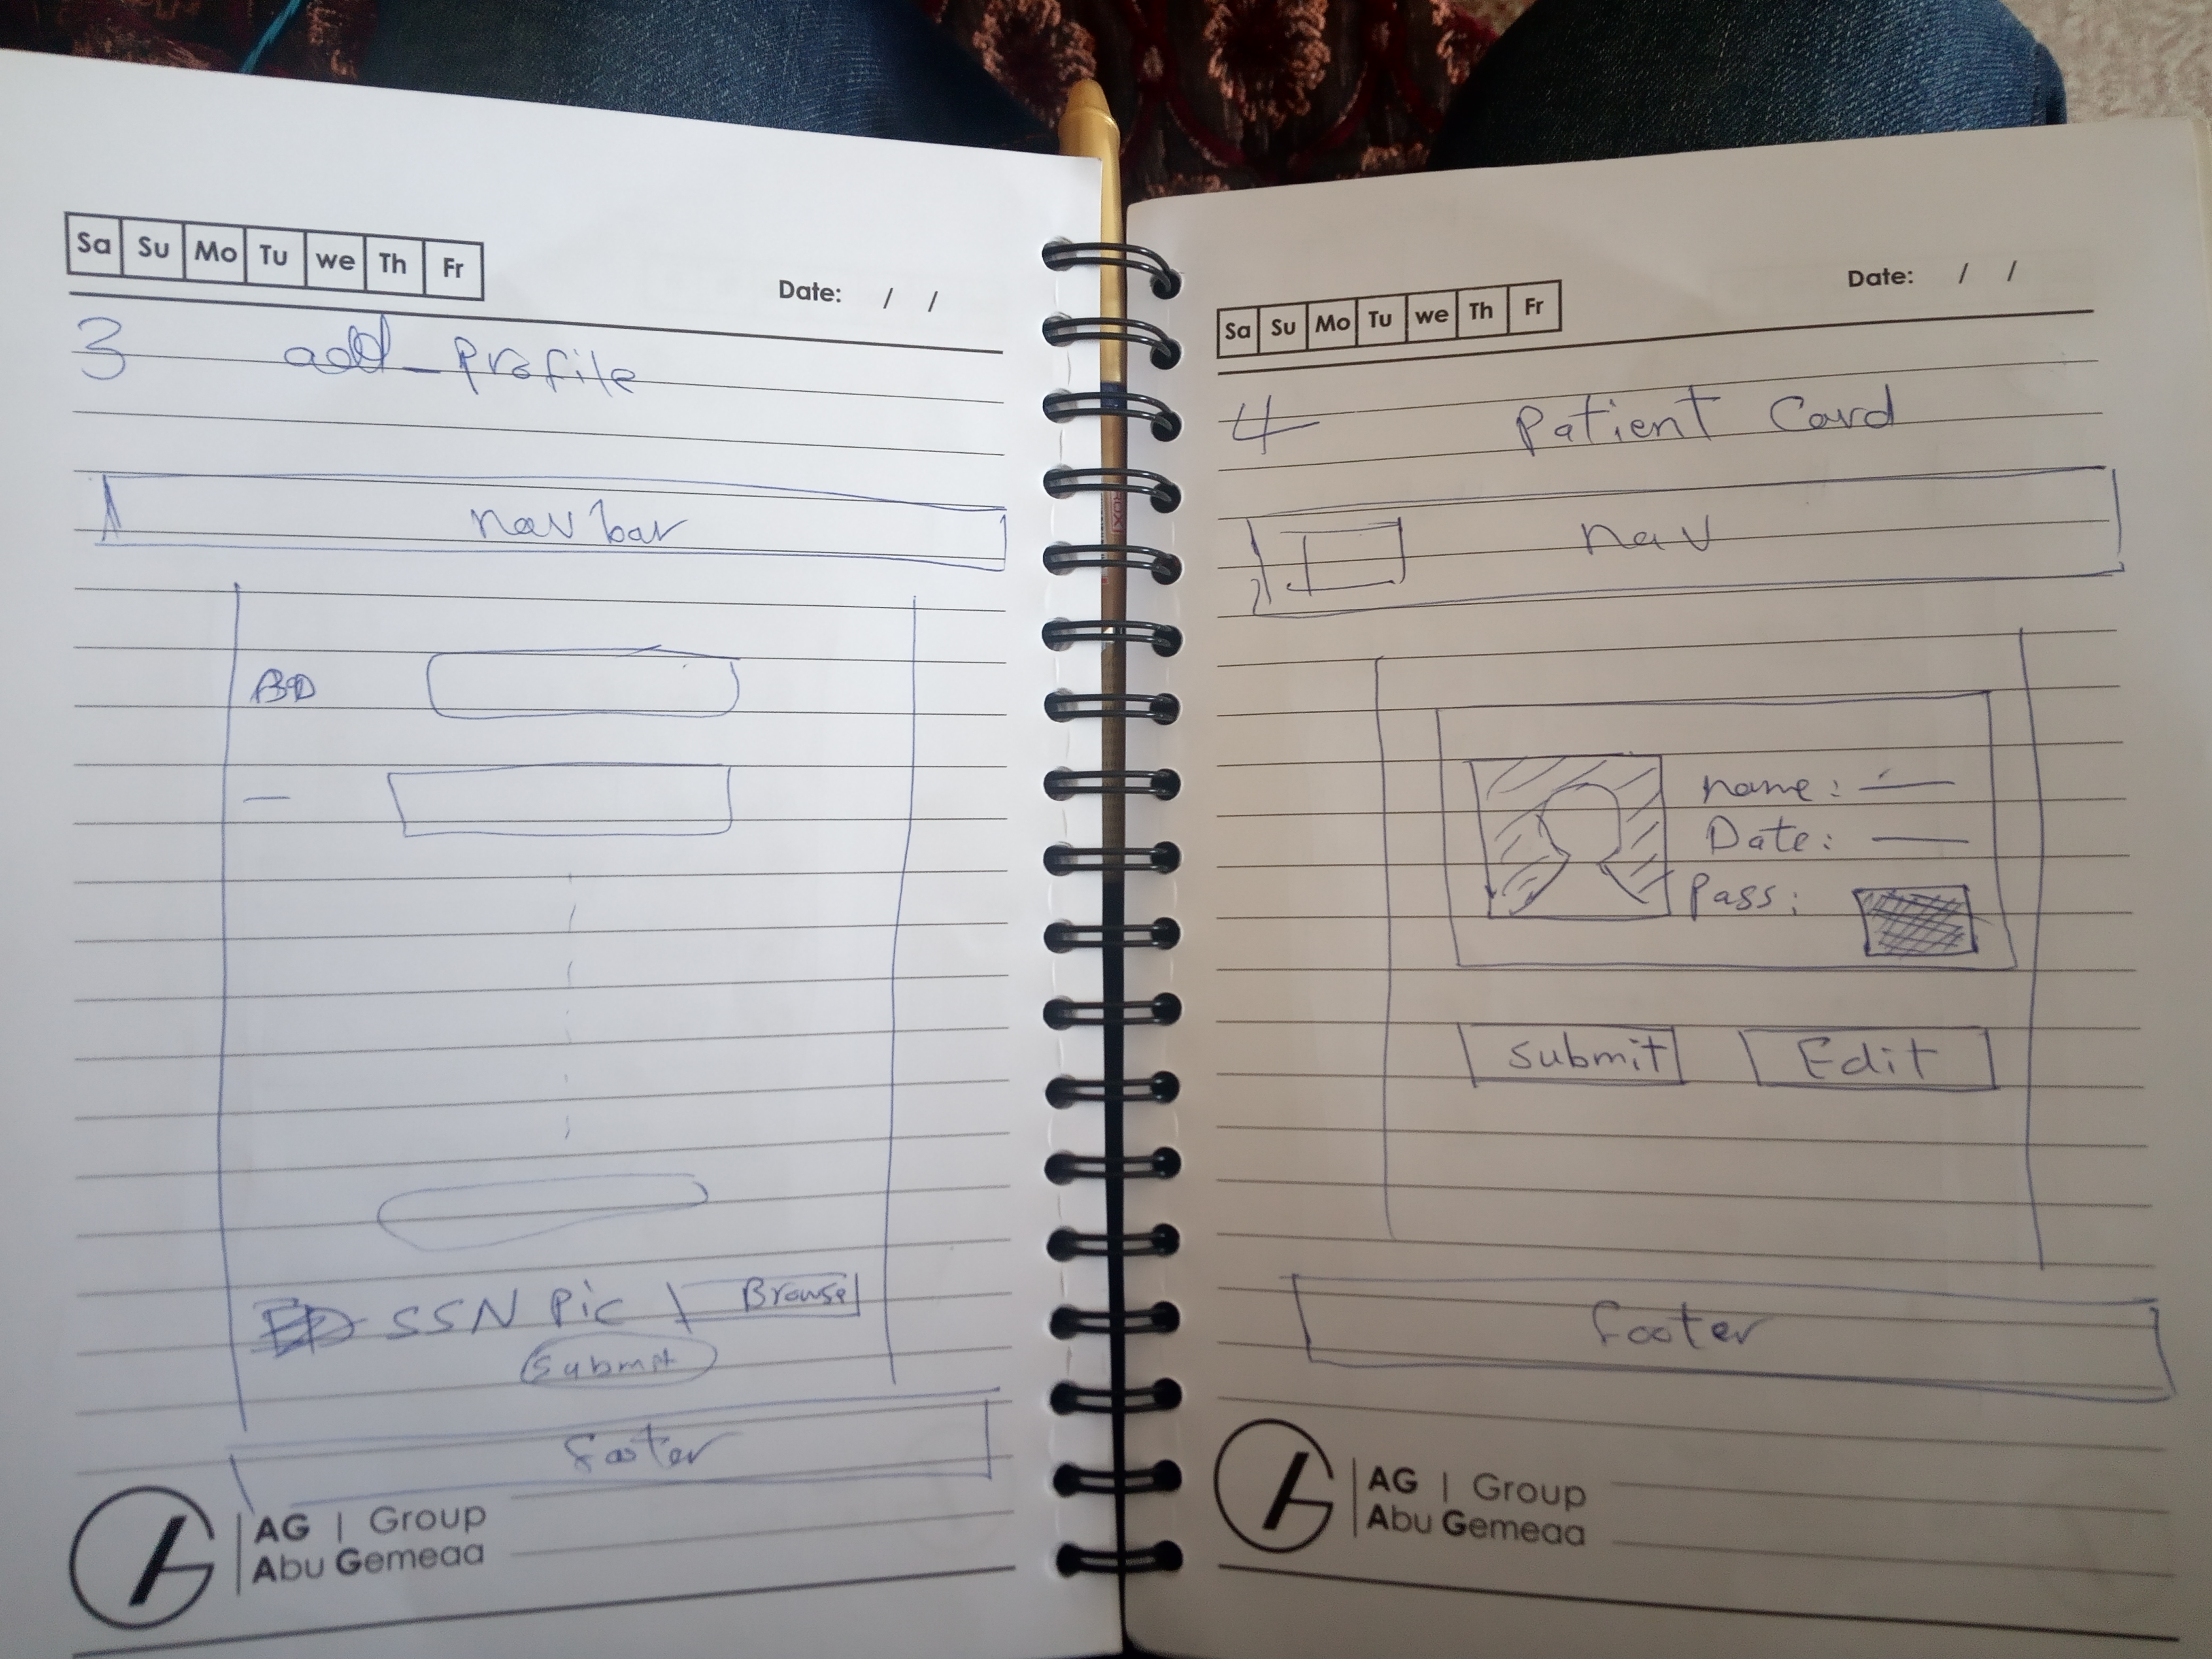 Sa Su Mo Tu we Th Fr
Date: / /
3 add_profile
nav bar
BD
SSN Pic Browse
Submit
footer
AG | Group
Abu Gemeaa
Date: / /
Sa Su Mo Tu we Th Fr
4 Patient Card
nav
name:
Date:
Pass:
Submit Edit
footer
AG | Group
Abu Gemeaa